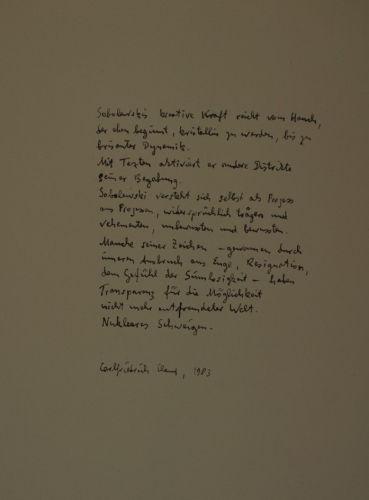 Sobolewskis kreative Kraft reicht vom Hauch,
der eben beginnt, kristallin zu werden, bis zu
brisanter Dynamik.
Mit Texten aktiviert er andere Distrikte
seiner Begabung.
Sobolewski versteht sich selbst als Prozess
aus Prozessen, widersprüchlich trägen und
vehementen, unbewussten und bewussten.
Manche seiner Zeichen – gewonnen durch
inneren Ausbruch aus Enge, Resignation,
dem Gefühl der Sinnlosigkeit – haben
Transparenz für die Möglichkeit
nicht mehr entfremdeter Welt.
Nukleares Schweigen.
Carlfriedrich Claus, 1983